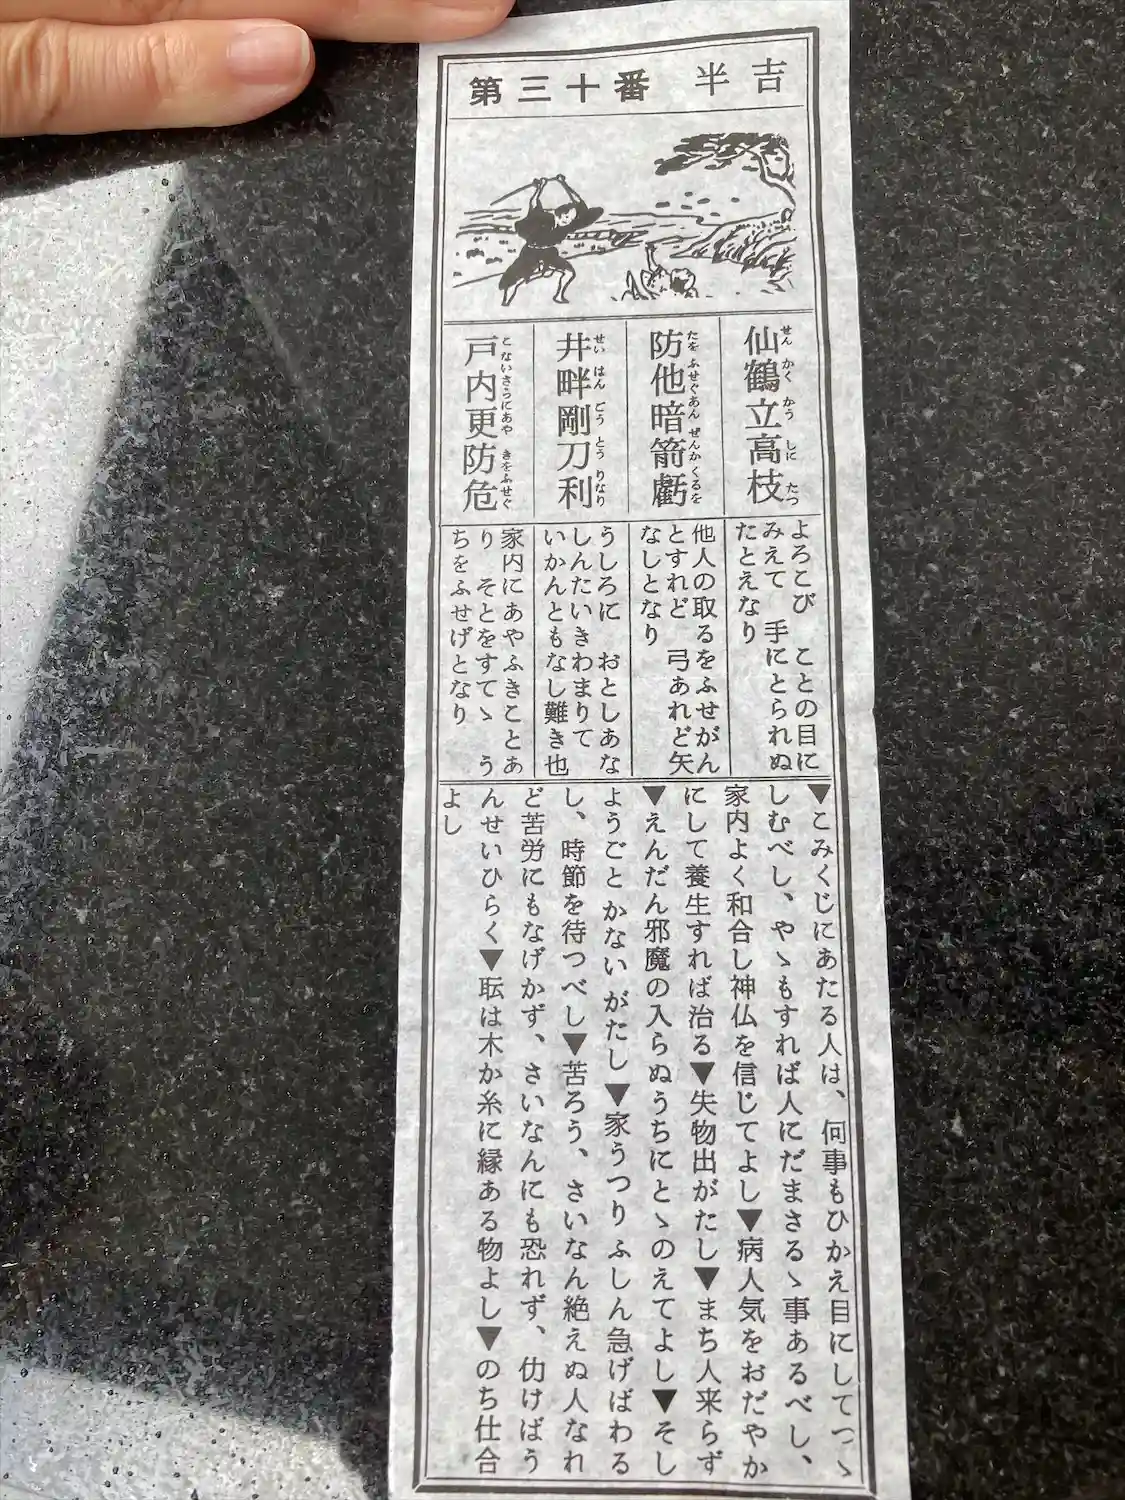 第三十番 半吉
仙鶴立高枝
せん かく かう しに たつ
防他暗箭虧
たを ふせぐあん ぜんか くるを
井畔剛刀利
せい はん ごう とう りなり
戸内更防危
とないさらにあや きをふせぐ
よろこび ことの目に
みえて 手にとられぬ
たとえなり
他人の取るをふせがん
とすれど 弓あれど矢
なしとなり
うしろに おとしあな
しんたいきわまりて
いかんともなし難き也
家内にあやふきことあ
り そとをすてゝ う
ちをふせげとなり
▼こみくじにあたる人は、何事もひかえ目にしてつゝ
しむべし、やゝもすれば人にだまさるゝ事あるべし、
家内よく和合し神仏を信じてよし▼病人気をおだやか
にして養生すれば治る▼失物出がたし▼まち人来らず
▼えんだん邪魔の入らぬうちにとゝのえてよし▼そし
ようごとかないがたし▼家うつりふしん急げばわる
し、時節を待つべし▼苦ろう、さいなん絶えぬ人なれ
ど苦労にもなげかず、さいなんにも恐れず、仂けばう
んせいひらく▼転は木か糸に縁ある物よし▼のち仕合
よし